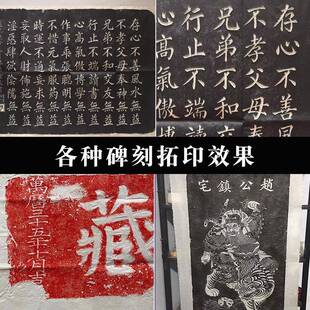 存心不善風水無益
不孝父母奉神無益
兄弟不和交友無益
行止不端讀書無益
心高氣傲博學無益
作事乖張聰明無益
不惜元氣服藥無益
時運不通妄求無益
妄取人財佈施無益
淫惡肆欲陰騭無益
存心不善風
不孝父母奉
兄弟不和交
行止不端讀
心高氣傲博
各种碑刻拓印效果
藏
萬曆三十五年十月吉
趙公鎮宅